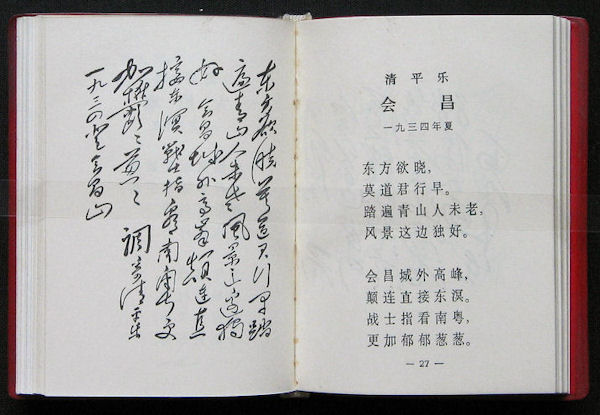 东方欲晓莫道君行早踏
遍青山人未老风景这边独
好 会昌城外高峰颠连直
接东溟战士指看南粤更
加郁〻葱〻
调寄清平乐
一九三四 登会昌山
清平乐
会昌
一九三四年夏
东方欲晓，
莫道君行早。
踏遍青山人未老，
风景这边独好。
会昌城外高峰，
颠连直接东溟。
战士指看南粤，
更加郁郁葱葱。
— 27 —